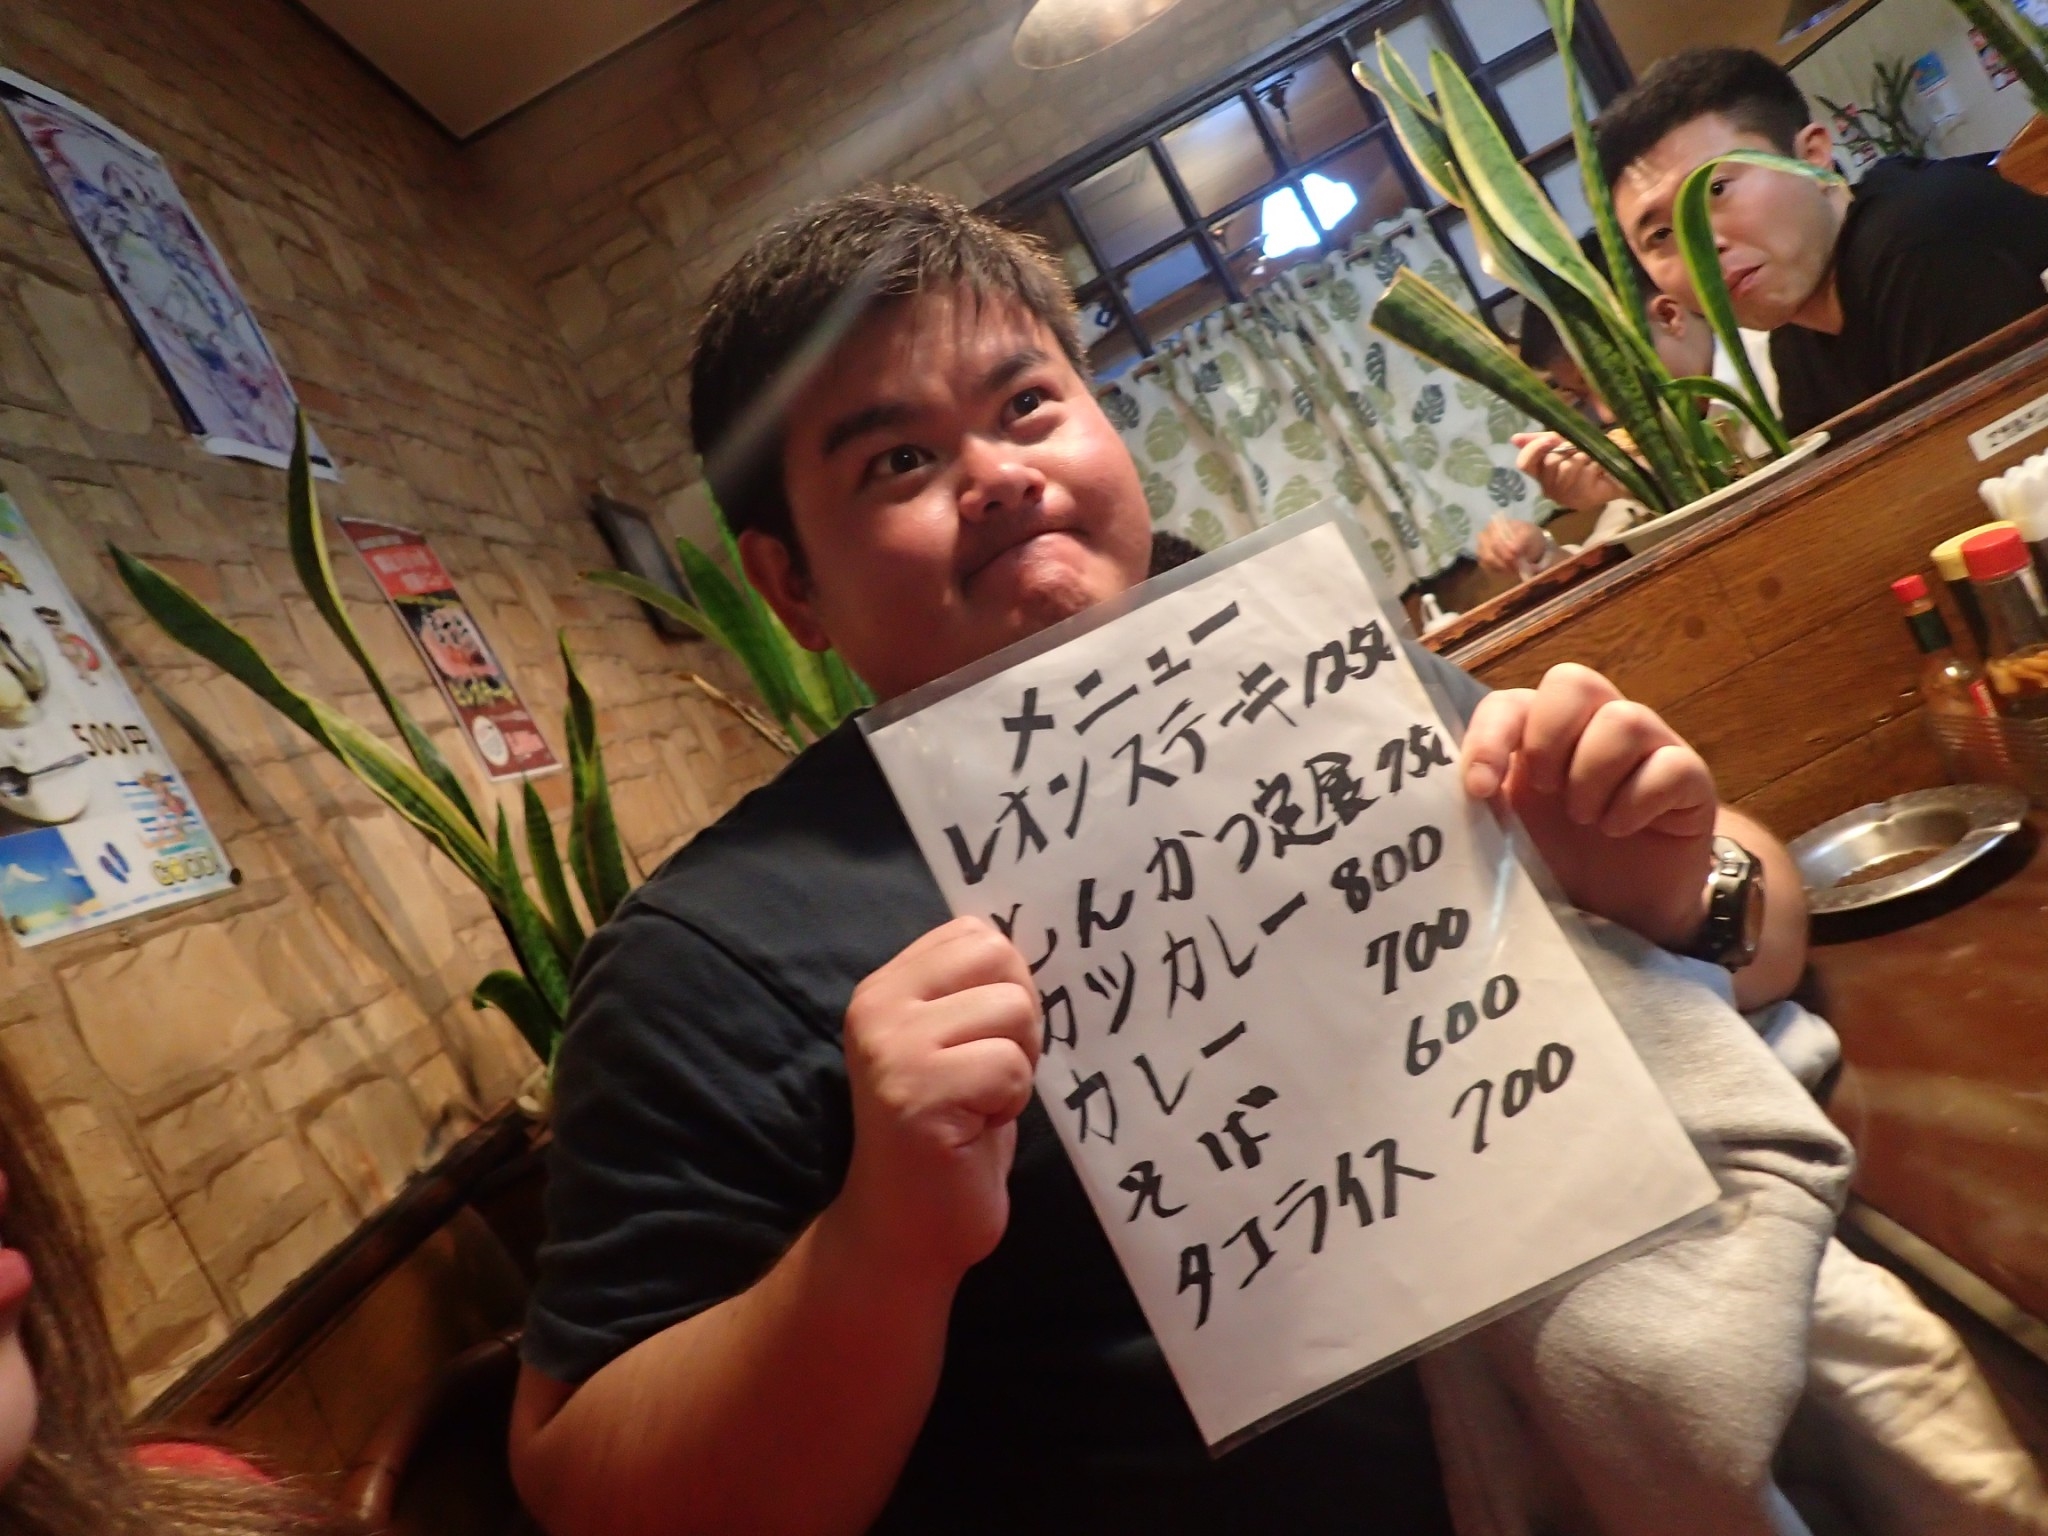 メニュー
レオンステーキ 1250
とんかつ定展 750
カツカレー 800
カレー 700
そば 600
タコライス 700
500円